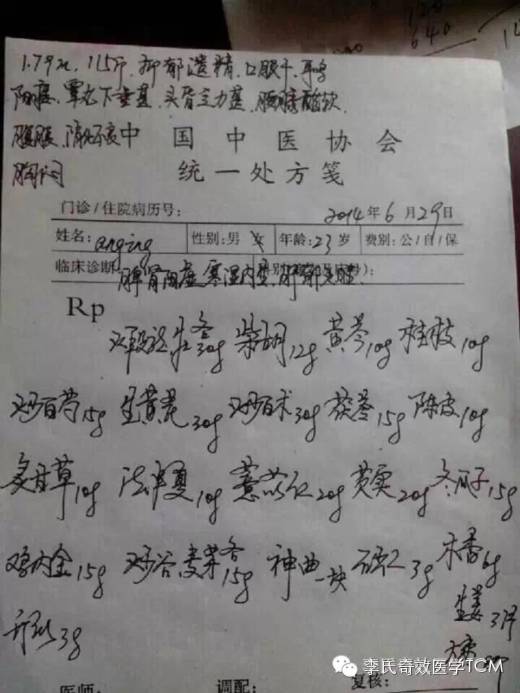 1.79m, 115斤, 抑郁遗精, 口眼干, 耳鸣
阳痿, 睾丸下垂甚, 头昏乏力甚, 腰膝酸软
腹胀, 中国中医协会
胸闷 统一处方笺
门诊/住院病历号: 2014年6月29日
姓名: 性别:男 女 年龄:23岁 费别:公/自/保
临床诊断 脾肾阳虚, 寒湿内
Rp
30g 柴胡12g 黄芩10g 桂枝10g
炒白芍15g 生黄芪30g 炒白术30g 茯苓15g 陈皮10g
炙甘草10g 法半夏10g 薏苡仁20g 芡实20g 冬瓜子15g
鸡内金15g 炒谷麦芽各15g 神曲一块 砂仁3g 木香6g
3g 生姜3片
大枣
医师: 调配: 复核:
李氏奇效医学TCM